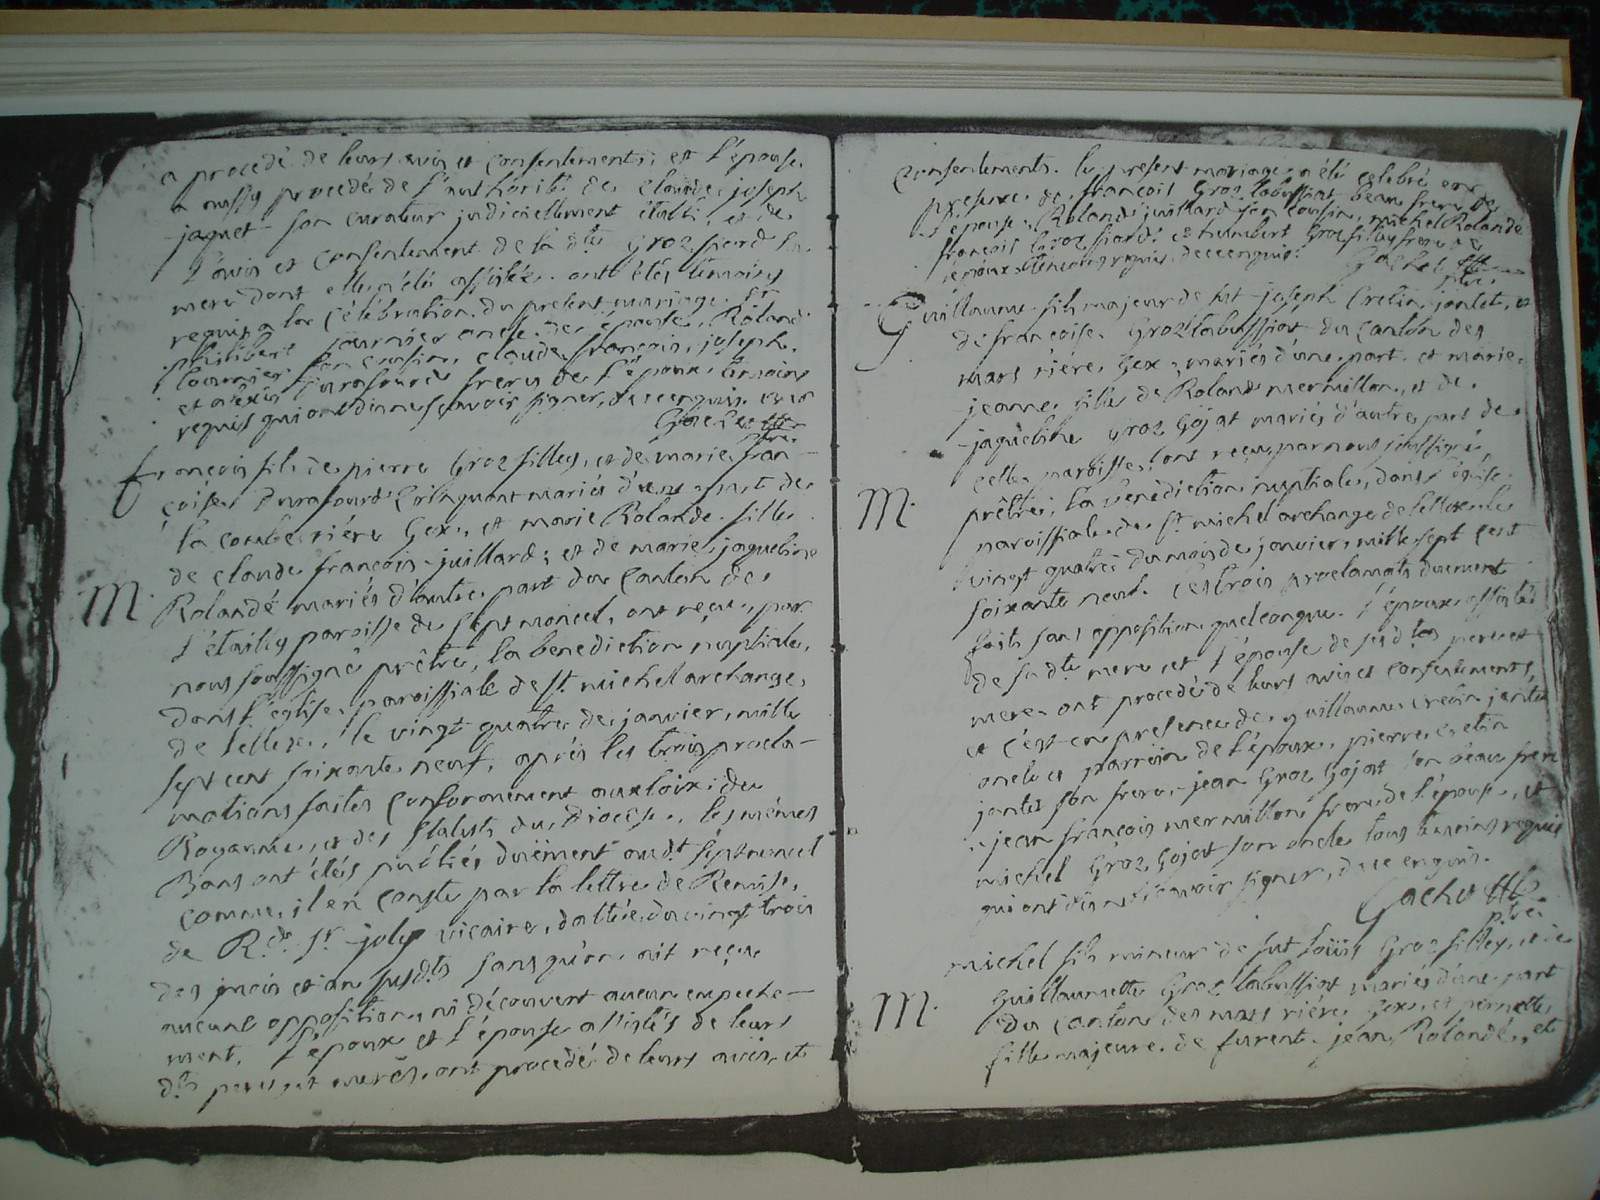 a procedé de leurs avis et consentements, et l'épouse
a aussy procedée de l'authorité de Claude joseph
jaquet son curateur judiciellement établi, et de
l'avis et consentement de la dte Groz piard sa
mere dont elle a été assistée. ont étés temoins
requis a la célébration du present mariage St
philibert journier oncle de l'épouse, Roland
tournier son cousin, claude françois, joseph
et aléxis Durafourd freres de l'époux temoins
requis qui ont dit ne sçavoir signer, de ce enquis
Gachette
ptre.
françois fils de pierre Groz filley, et de marie fran-
çoise Durafourd Corinquant mariés d'une part de
la combe riére Gex, et marie Rolande fille
de claude françois juillard, et de marie jaqueline
M. Rolandé mariés d'autre part du Canton de
l'étailley paroisse de septmoncel, ont reçu, par
nous soussigné prêtre, la benediction nuptiale,
dans l'église paroissiale de St. michel archange,
de Lellex, le vingt quatre de janvier, mille
sept cent soixante neuf, après les trois procla-
mations faites conformement aux loix du
Royaume, et des statuts du Diocèse, les mêmes
Bans ont étés publiés duëment audt. septmoncel
comme il en conste par la lettre de Remise,
de Rd. Sr. joly vicaire, dattée du vingt trois
des mois et an susdts sans qu'on ait reçu
aucune opposition, ni découvert aucun empeche-
ment. l'époux et l'épouse assistés de leurs
dts peres et meres, ont procedé de leurs avis, et
consentements. le present mariage a été celebré en
presence de françois Groz tabussiat beau frere de
l'épouse, Roland juillard son cousin, michel Rolandé
françois Groz piard et humbert Groz filley frere de
l'époux temoins requis, de ce enquis.
Gachette
ptre.
Guillaume fils majeur de fut joseph Cretin jantet, et
de françoise Groz tabussiat du Canton des
mars riére Gex, mariés d'une part, et marie
jeanne fille de Roland mermillon, et de
jaqueline Groz Gojat mariés d'autre part de
cette paroisse, ont reçu par nous soussigné
M. prêtre, la bénédiction nuptiale, dans l'église
paroissiale de St. michel archange de Lellex le
vingt quatre du mois de janvier, mille sept cent
soixante neuf. les trois proclamats duement
faits sans opposition quelconque. l'époux assisté
de sa dte mere, et l'épouse de ses dts pere et
mere ont procedé de leurs avis et consentements,
et c'est en presence de guillaume cretin jantet
oncle et parrein de l'époux, pierre cretin
jantet son frere, jean Groz Gojat son beau frere
jean françois mermillon frere de l'épouse, et
michel Groz Gojat son oncle tous temoins requis
qui ont dit ne sçavoir signer, de ce enquis.
Gachette
ptre.
michel fils mineur de fut Loüis Groz filley, et de
Guillaumette Groz tabussiat mariés d'une part
M. du Canton des mars riére Gex, et pernette
fille majeure de furent jean Rolandé, et